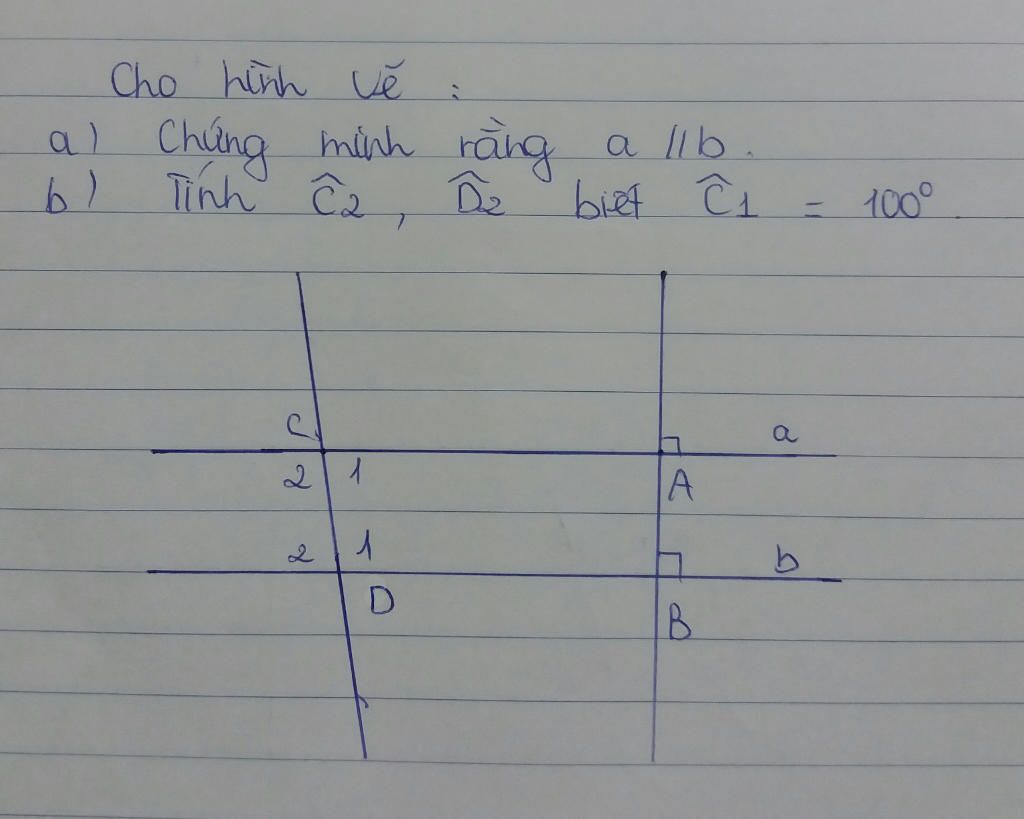 Cho hình vẽ :
a) Chứng minh rằng a // b.
b) Tính Ĉ2 , D̂2 biết Ĉ1 = 100°.
C a
2 1 A
2 1 b
D B